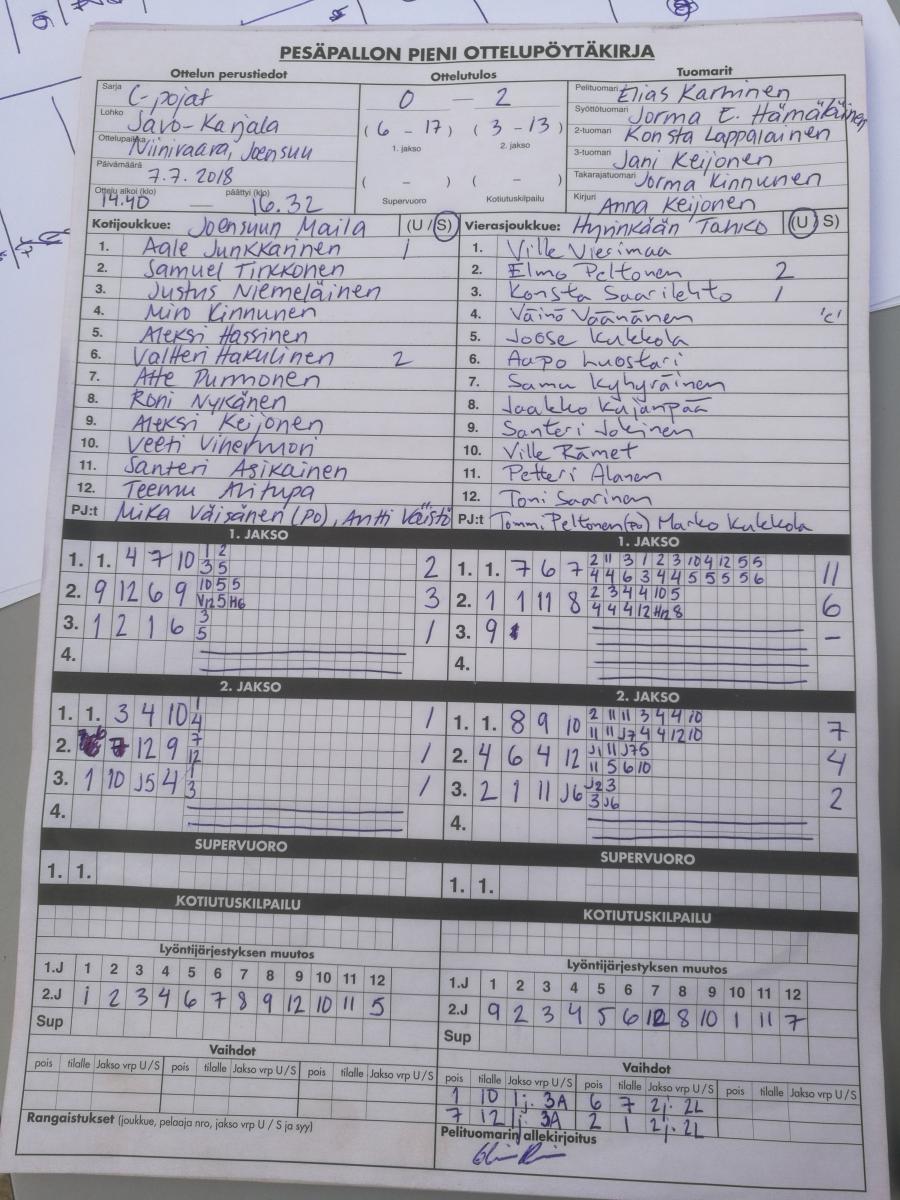 PESÄPALLON PIENI OTTELUPÖYTÄKIRJA
Ottelun perustiedot
Sarja
C-pojat
Lohko
Savo-Karjala
Ottelupaikka
Niinivaara, Joensuu
Päivämäärä
7.7.2018
Ottelu alkoi (klo) päättyi (klo)
14.40 — 16.32
Ottelutulos
0 — 2
(6 - 17) (3 - 13)
1. jakso 2. jakso
( - ) ( - )
Supervuoro Kotiutuskilpailu
Tuomarit
Pelituomari Elias Karhinen
Syöttötuomari Jorma E. Hämäläinen
2-tuomari Konsta Lappalainen
3-tuomari Jani Keijonen
Takarajatuomari Jorma Kinnunen
Kirjuri Anna Keijonen
Kotijoukkue: Joensuun Maila (U / S)
1. Aale Junkkarinen 1
2. Samuel Tirkkonen
3. Justus Niemeläinen
4. Miro Kinnunen
5. Aleksi Hassinen
6. Valtteri Hakulinen 2
7. Atte Purmonen
8. Roni Nykänen
9. Aleksi Keijonen
10. Veeti Vihermori
11. Santeri Asikainen
12. Teemu Alitupa
PJ:t Mika Väisänen (PO), Antti Väistö
Vierasjoukkue: Hyvinkään Tahko (U / S)
1. Ville Vierimaa
2. Elmo Peltonen 2
3. Konsta Saarilehto 1
4. Väinö Väänänen 'c'
5. Joose Kukkola
6. Aapo Luostari
7. Samu Kyhyräinen
8. Jaakko Kajanpää
9. Santeri Jokinen
10. Ville Rämet
11. Petteri Alanen
12. Toni Saarinen
PJ:t Tommi Peltonen (PO) Marko Kukkola
1. JAKSO
1. 1. 4 7 10 1 2 2
3 5
2. 9 12 6 9 10 5 5 3
V12 5 H6
3. 1 2 1 6 3 1
5
4.
1. JAKSO
1. 1. 7 6 7 2 11 3 1 2 3 10 4 12 5 5 11
4 4 6 3 4 4 5 5 5 5 6
2. 1 1 11 8 2 3 4 4 10 5 6
4 4 4 12 H12 8
3. 9 –
4.
2. JAKSO
1. 1. 3 4 10 1 1
4
2. 7 12 9 7 1
12
3. 1 10 J5 4 1 1
3
4.
2. JAKSO
1. 1. 8 9 10 2 11 11 3 4 4 10 7
11 11 J7 4 4 12 10
2. 4 6 4 12 J1 11 J7 5 4
11 5 6 10
3. 2 1 11 J6 J2 3 2
3 J6
4.
SUPERVUORO
1. 1.
SUPERVUORO
1. 1.
KOTIUTUSKILPAILU
KOTIUTUSKILPAILU
Lyöntijärjestyksen muutos
1.J 1 2 3 4 5 6 7 8 9 10 11 12
2.J 1 2 3 4 6 7 8 9 12 10 11 5
Sup
Lyöntijärjestyksen muutos
1.J 1 2 3 4 5 6 7 8 9 10 11 12
2.J 9 2 3 4 5 6 12 8 10 1 11 7
Sup
Vaihdot
pois tilalle Jakso vrp U / S pois tilalle Jakso vrp U / S pois tilalle Jakso vrp U / S
Rangaistukset (joukkue, pelaaja nro, jakso vrp U / S ja syy)
Vaihdot
pois tilalle Jakso vrp U / S pois tilalle Jakso vrp U / S pois tilalle Jakso vrp U / S
1 10 1j. 3A 6 7 2j. 2L
7 12 1j. 3A 2 1 2j. 2L
Pelituomarin allekirjoitus